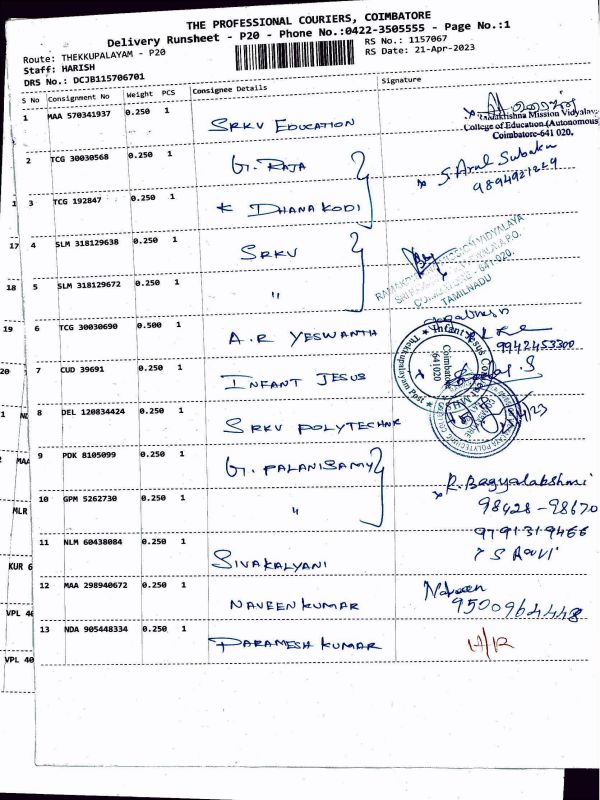 THE PROFESSIONAL COURIERS, COIMBATORE
Delivery Runsheet - P20 - Phone No.:0422-3505555 - Page No.:1
Route: THEKKUPALAYAM - P20
RS No.: 1157067
Staff: HARISH
RS Date: 21-Apr-2023
DRS No.: DCJB115706701
S No Consignment No Weight PCS Consignee Details Signature
1 MAA 570341937 0.250 1 SRKV EDUCATION
Ramakrishna Mission Vidyalaya
College of Education (Autonomous)
Coimbatore-641 020.
2 TCG 30030568 0.250 1 G. RAJA
S. Arul Subaku
9894921229
3 TCG 192847 0.250 1 K DHANAKODI
17 4 SLM 318129638 0.250 1 SRKV
18 5 SLM 318129672 0.250 1 "
COIMBATORE - 641-020.
TAMILNADU
19 6 TCG 30030690 0.500 1 A.R YESWANTH
9942453300
20 7 CUD 39691 0.250 1 INFANT JESUS
Infant Jesus
Coimbatore
641020
Thekkupalayam Post
8 DEL 120834424 0.250 1 SRKV POLYTECHNIC
9 PDK 8105099 0.250 1 G. PALANISAMY
R. Bagyalakshmi
98428-98670
10 GPM 5262730 0.250 1 "
9791319466
11 NLM 60438084 0.250 1 SIVAKALYANI
12 MAA 298940672 0.250 1 NAVEEN KUMAR
Naveen
9500964448
13 NDA 905448334 0.250 1 PARAMESH KUMAR
MAA
MLR
KUR 6
VPL 46
VPL 40